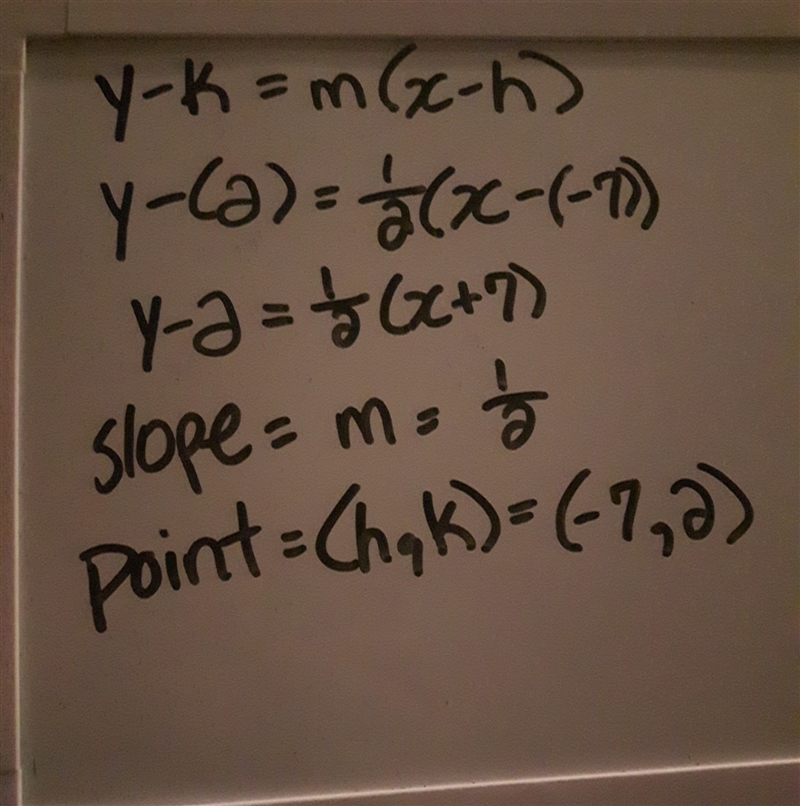 y-k = m(x-h)
y-(2) = 1/2(x-(-7))
y-2 = 1/2(x+7)
slope = m = 1/2
point = (h,k) = (-7,2)